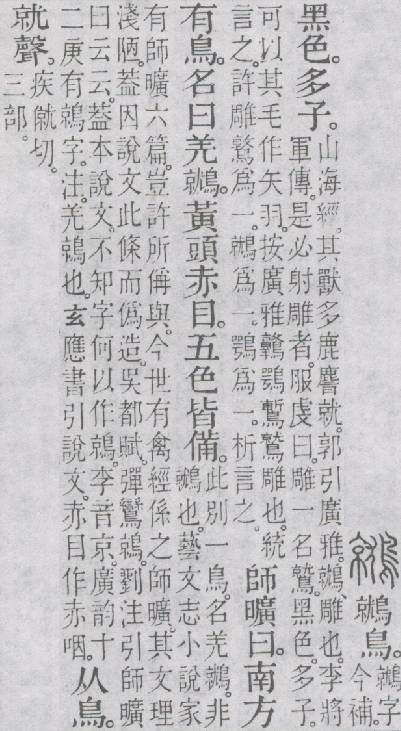 鷲鳥。鷲字
今補。
黑色。多子。山海經。其獸多鹿麢就。郭引廣雅。鷲、雕也。李將
軍傳。是必射雕者。服虔曰。雕一名鷲。黑色。多子。
可以其毛作矢羽。按廣雅鶚鷲雕也。統
言之。許雕鷻爲一。鷲爲一。鶚爲一。析言之。師曠曰。南方
有鳥。名曰羌鷲。黃頭赤目。五色皆備。此別一鳥。名羌鷲。非
鷲也。藝文志小說家
有師曠六篇。豈許所偁與。今世有禽經係之師曠。其文理
淺陋。葢因說文此條而僞造。吳都賦。彈鸞鶁。劉注引師曠
曰云云。葢本說文。不知字何以作鶁。李音京。廣韵十
二庚有鶁字。注。羌鶁也。玄應書引說文。赤目作赤咽。从鳥。
就聲。疾僦切。
三部。